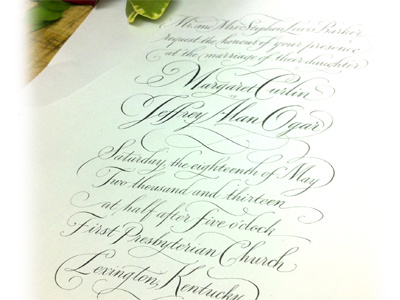 Mr. and Mrs. Stephen Lewis Barker
request the honour of your presence
at the marriage of their daughter
Margaret Curlin
Jeffrey Alan Ogar
Saturday, the eighteenth of May
Two thousand and thirteen
at half after five o'clock
First Presbyterian Church
Lexington, Kentucky